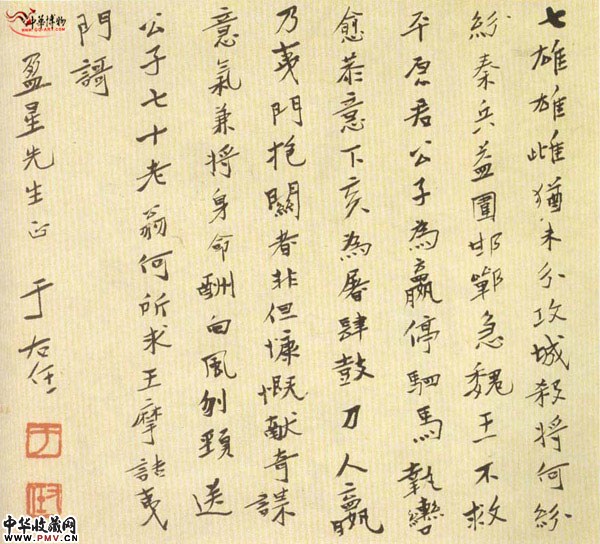 七雄雄雌猶未分攻城殺將何紛
紛秦兵益圍邯鄲急魏王不救
平原君公子為嬴停駟馬執轡
愈恭意下亥為屠肆鼓刀人嬴
乃夷門抱關者非但慷慨献奇謀
意氣兼將身命酬向風刎頸送
公子七十老翁何所求王摩詰夷
門謌
盈星先生正 于右任
中華博物
中华收藏网
www.PMV.CN